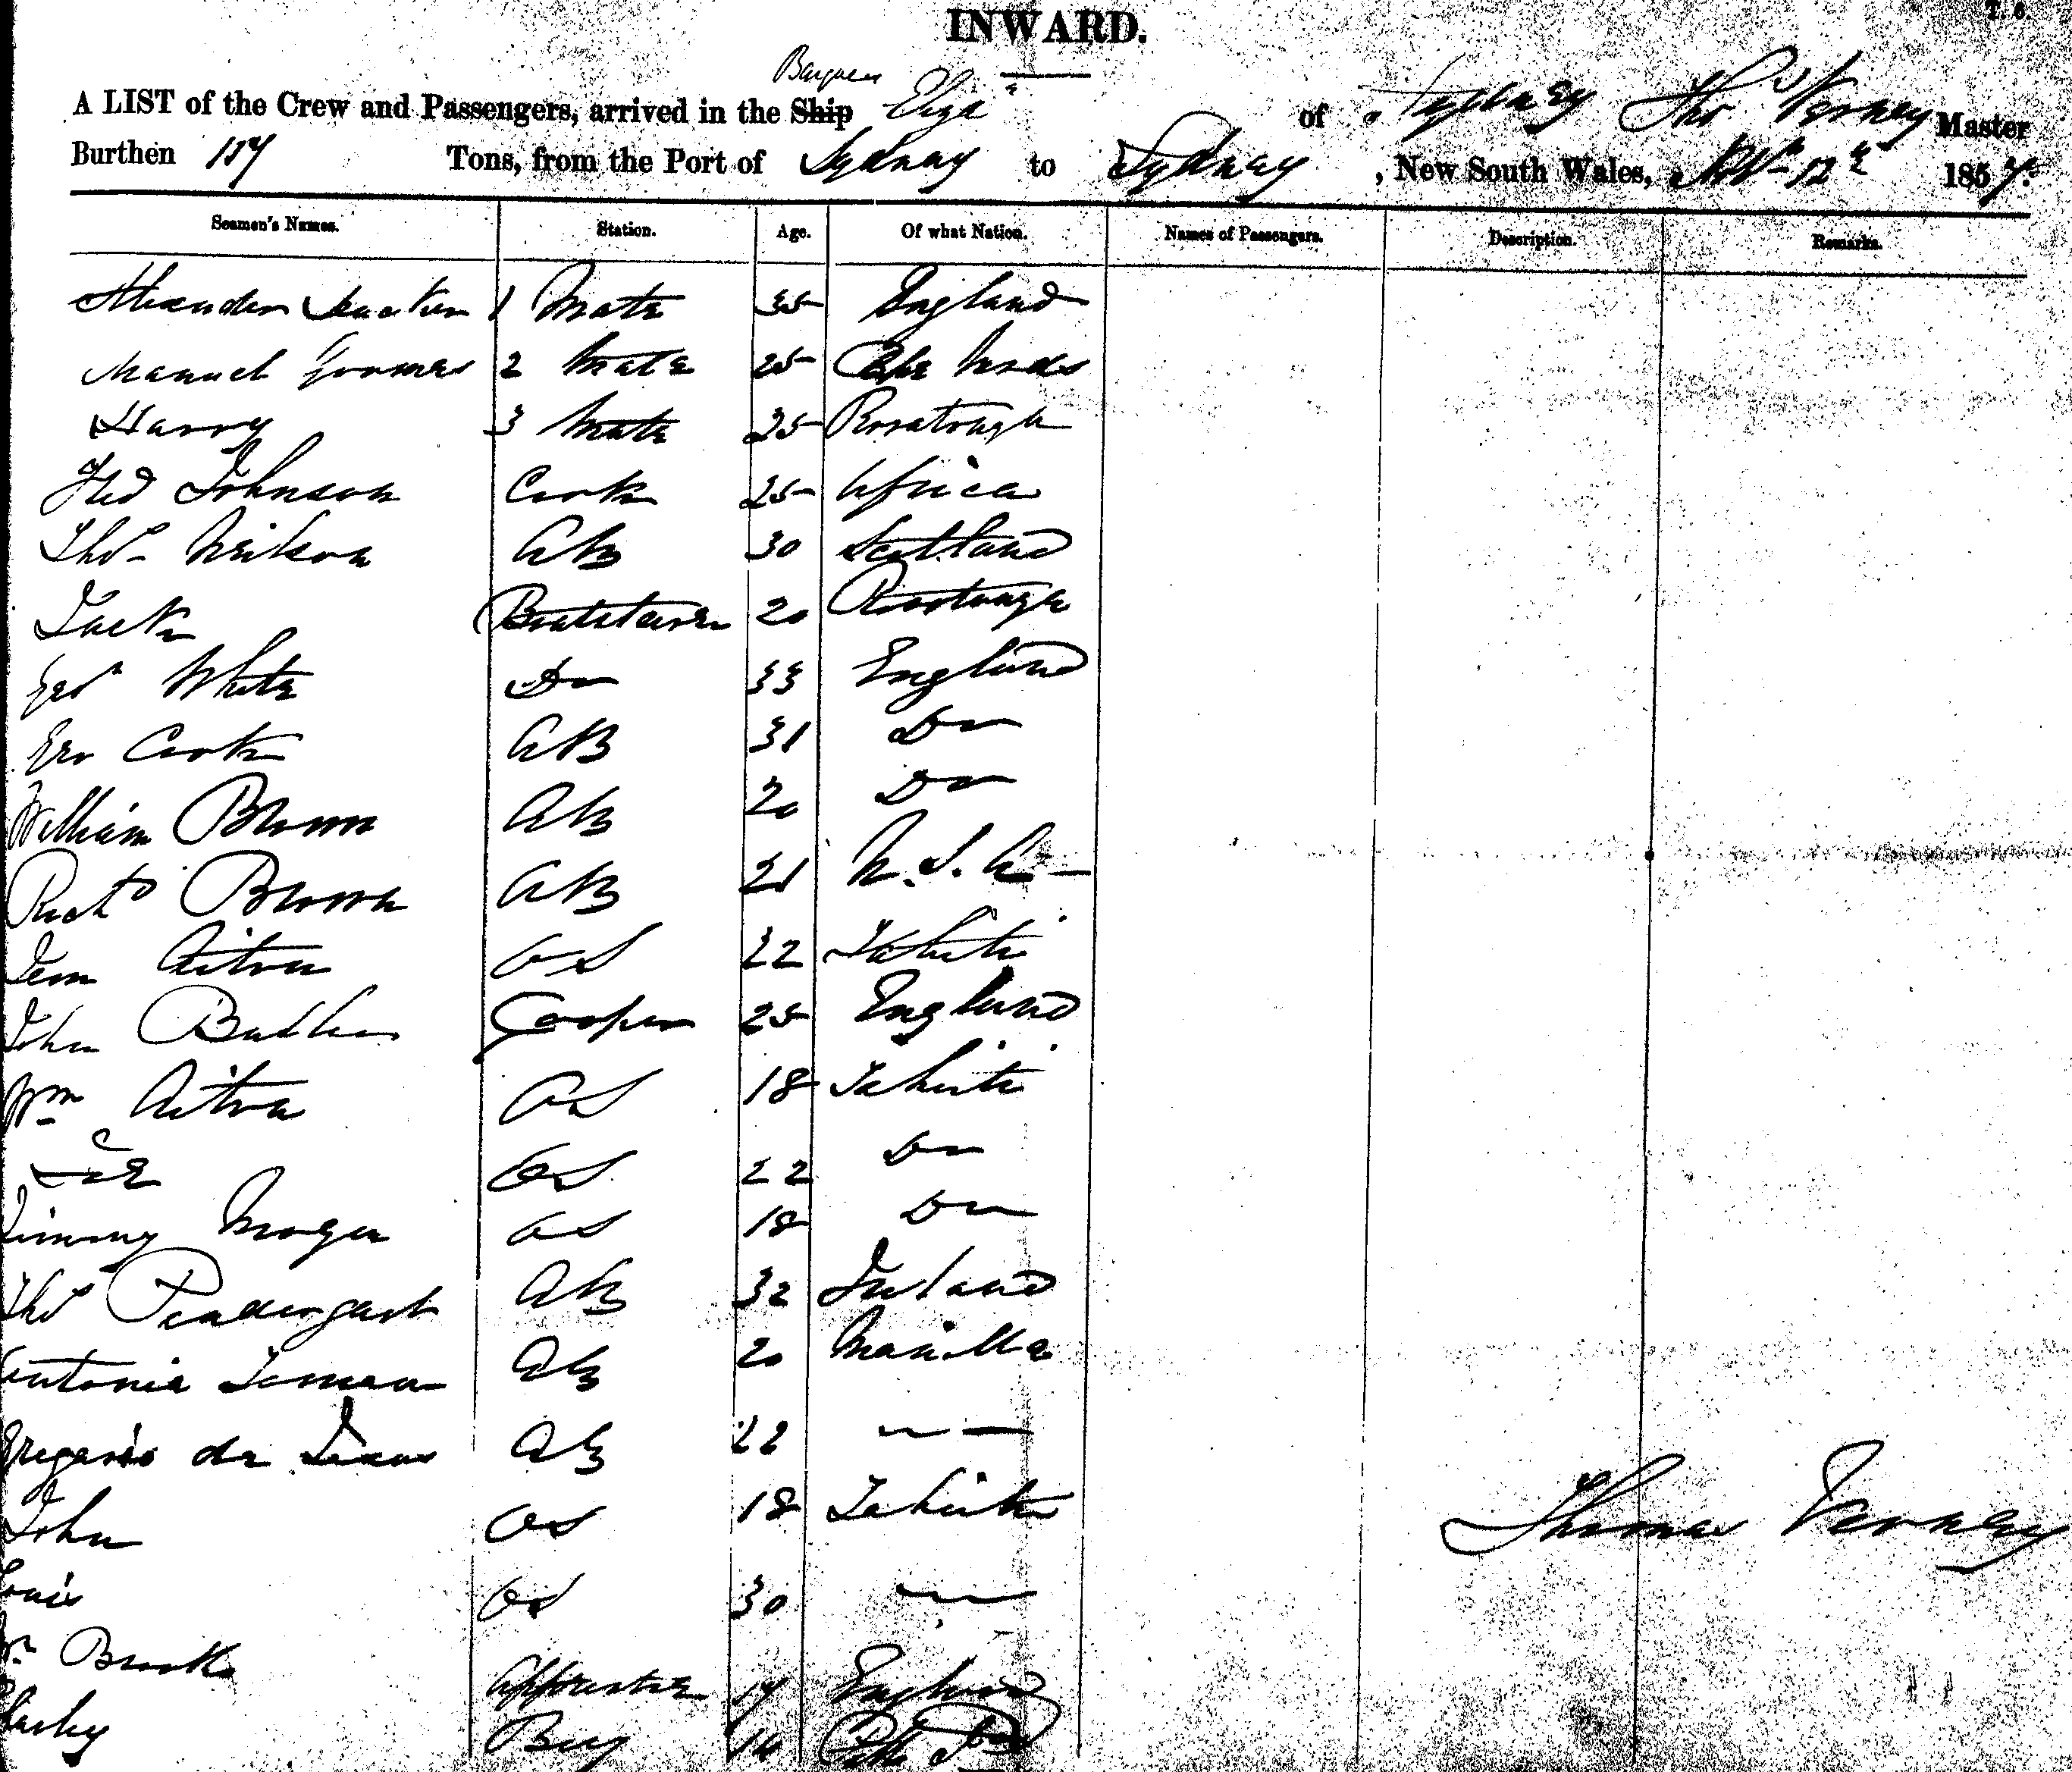 INWARD.
Barque
A LIST of the Crew and Passengers, arrived in the Ship Eliza of Sydney Thos Varney Master
Burthen Tons, from the Port of Sydney to Sydney, New South Wales, Novr 12th 1857.
Seamen's Names. Station. Age. Of what Nation. Names of Passengers. Description. Remarks.
Alexander 1 Mate 35 England
Manuel 2 Mate 25 Cape
Harry 3 Mate 25 Roratonga
Fred Johnson Cook 25 Africa
Thos Neilson AB 30 Scotland
Jack Boatsteerer 20
Geo White Do 33 England
Geo Cook AB 31 Do
William Brown AB 20 Do
Richd Brown AB 21
Tom OS 22 Tahiti
John Cooper 25 England
Wm OS 18 Tahiti
Joe OS 22 Do
Jimmy OS 18 Do
Thos Pendergast AB 32 Ireland
Antonia AB 20 Manilla
Gregario de AB 22 — —
John OS 18 Tahiti
Thomas Varney
Louis OS 30 —
Wm Brooks Apprentice England
Charley Boy